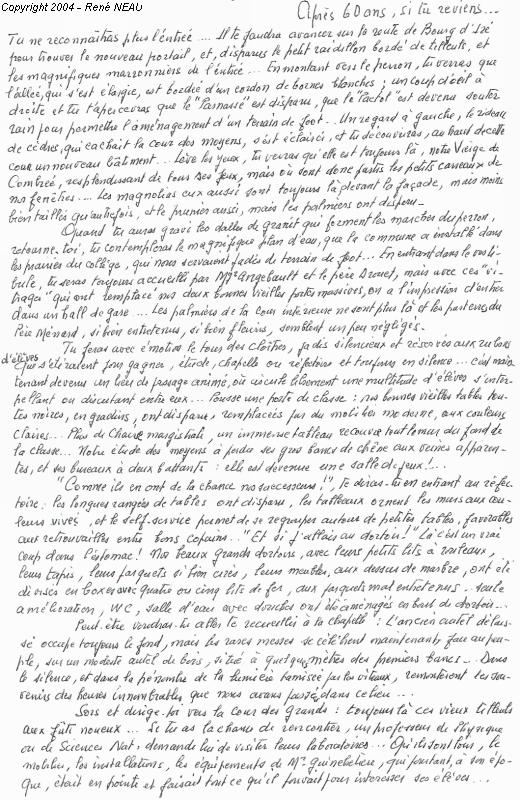 Copyright 2004 - René NEAU
Après 60 ans, si tu reviens...
Tu ne reconnaîtras plus l'entrée... Il te faudra avancer sur la route de Bourg d'Iré
pour trouver le nouveau portail, et, disparus le petit raidillon bordé de tilleuls, et
les magnifiques marronniers de l'entrée... En montant vers le perron, tu verras que
l'allée, qui s'est élargie, est bordée d'un cordon de bornes blanches ; un coup d'œil à
droite et tu t'apercevras que le "Parnasse" est disparu, que le "Pactol" est devenu souter
rain pour permettre l'aménagement d'un terrain de foot... Un regard à gauche, le rideau
de cèdres, qui cachait la cour des moyens, s'est éclairci, et tu découvriras, au bord de cette
cour un nouveau bâtiment... Lève les yeux, tu verras qu'elle est toujours là, notre Vierge de
Combrée, resplendissant de tous ses feux, mais où sont donc passés les petits carreaux de
nos fenêtres.... Les magnolias eux aussi sont toujours là devant la façade, mais moins
bien taillés qu'autrefois, et le prunier aussi, mais les palmiers ont disparu.
Quand tu auras gravi les dalles de granit qui forment les marches du perron,
retourne-toi, tu contempleras le magnifique plan d'eau, que la commune a installé dans
les prairies du collège, qui nous servaient jadis de terrain de foot... En entrant dans le vesti-
bule, tu seras toujours accueilli par Mgr Angebault et le père Drouet, mais avec ces "vi-
trages" qui ont remplacé nos deux bonnes vieilles portes massives, on a l'impression d'entrer
dans un hall de gare.... Les palmiers de la cour intérieure ne sont plus là et les parterres du
Père Ménard, si bien entretenus, si bien fleuris, semblent un peu négligés.
Tu feras avec émotion le tour des cloîtres, jadis silencieux et réservés aux colons
d'élèves
que s'étiraient pour gagner, étude, chapelle ou réfectoire et toujours en silence... c'est main-
tenant devenu un lieu de passage animé, où circule librement une multitude d'élèves s'inter-
pellant ou discutant entre eux... Pousse une porte de classe : nos bonnes vieilles tables tou-
tes noires, en gradins, ont disparu, remplacées par du mobilier moderne, aux couleurs
claires... Plus de Chaire magistrale, un immense tableau recouvre tout le mur du fond de
la classe... Notre étude des moyens a perdu ses gros bancs de chêne aux veines apparen-
tes, et ses bureaux à deux battants : elle est devenue une salle de jeux !...
"Comme ils en ont de la chance nos successeurs !", te diras-tu en entrant au réfec-
toire : les longues rangées de tables ont disparu, les tableaux ornent les murs aux cou-
leurs vives, et le self-service permet de se regrouper autour de petites tables, favorables
aux retrouvailles entre bons copains... "Et si j'allais au dortoir !" Là c'est un vrai
coup dans l'estomac ! Nos beaux grands dortoirs, avec leurs petits lits à rateaux,
leurs tapis, leurs parquets si bien cirés, leurs meubles, aux dessus de marbre, ont été
divisés en boxes avec quatre ou cinq lits de fer, aux parquets mal entretenus... seule
amélioration, WC, salle d'eau avec douches ont été aménagés en bout de dortoir...
Peut-être voudras-tu aller te recueillir à la chapelle : L'ancien autel délais-
sé occupe toujours le fond, mais les rares messes se célèbrent maintenant, face au peu-
ple, sur un modeste autel de bois, situé à quelques mètres des premiers bancs... Dans
le silence, et dans la pénombre de la lumière tamisée par les vitraux, remonteront les sou-
venirs des heures innombrables que nous avons passées dans ce lieu...
Sors et dirige-toi vers la cour des grands : toujours là ces vieux tilleuls
aux fûts noueux... Si tu as la chance de rencontrer, un professeur de Physique
ou de Sciences Nat, demande lui de visiter leurs laboratoires... Qu'ils sont loin, le
mobilier, les installations, les équipements de Mr Guinebetière, qui pourtant, à son épo-
que, était en pointe et faisait tout ce qu'il pouvait pour intéresser ses élèves...